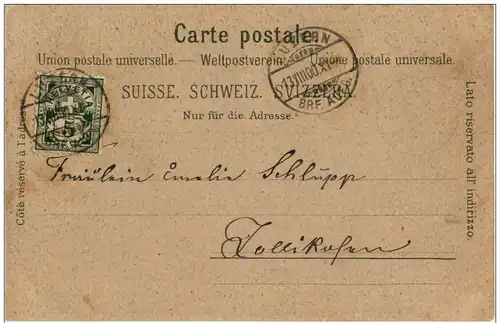 Carte postale.
Union postale universelle. — Weltpostverein. — Unione postale universale.
SUISSE. SCHWEIZ. SVIZZERA.
Nur für die Adresse.
Côté réservé à l'adresse.
Lato riservato all' indirizzo.
LUZERN
13.VIII.00.XI
BRF. AUFG.
HELVETIA
5
Fräulein Emelie Schlupp
Zollikofen